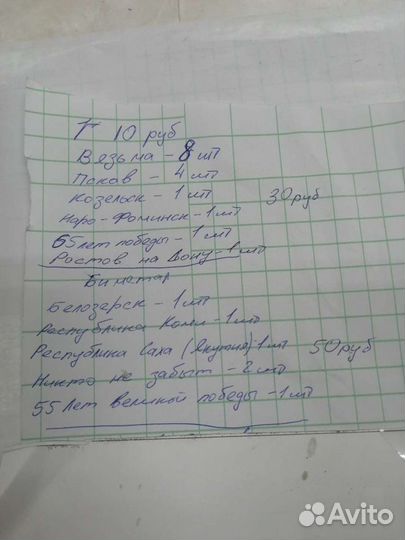 10 руб
Вязьма - 8 шт
Псков - 4 шт
Козельск - 1 шт
30 руб
Наро-Фоминск - 1 шт
65 лет победы - 1 шт
Ростов на Дону - 1 шт
Биметал
Белозерск - 1 шт
Республика Коми - 1 шт
Республика Саха (Якутия) 1 шт
50 руб
Никто не забыт - 2 шт
55 Лет Великой победы - 1 шт
Avito